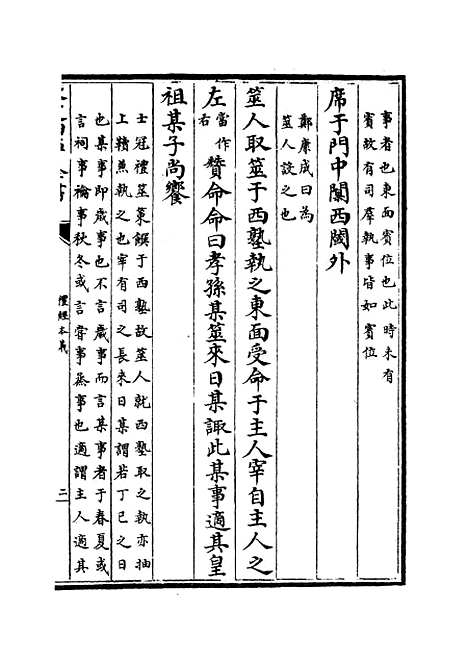 事者也東面賔位也此時未有
賔故有司羣執事皆如賔位
席于門中闑西閾外
鄭康成曰為
筮人設之也
筮人取筮于西塾執之東面受命于主人宰自主人之
左當作右贊命命曰孝孫某筮來日某諏此某事適其皇
祖某子尚饗
士冠禮筮蓍饌于西塾故筮人就西塾取之執亦抽
上韇兼執之也宰有司之長來日某謂若丁巳之日
也某事即歲事也不言歲事而言某事者于春夏或
言祠事禴事秋冬或言嘗事烝事也適謂主人適其
禮經本義
二